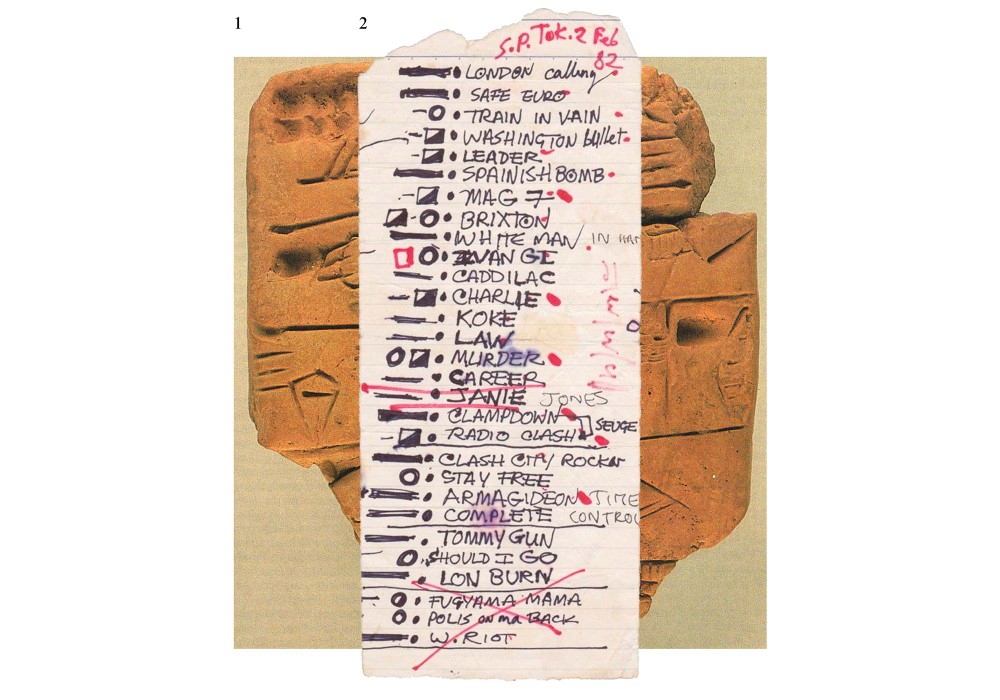 1
2
S.P. Tok. 2 Feb
82
LONDON calling
SAFE EURO
TRAIN IN VAIN
WASHINGTON bullet
LEADER
SPAINISH BOMB
MAG 7
BRIXTON
WHITE MAN IN HAM
IVAN GI
CADDILAC
CHARLIE
KOKE
LAW
MURDER
CAREER
JANIE JONES
CLAMPDOWN
SEUGE
RADIO CLASH
CLASH CITY ROCKER
STAY FREE
ARMAGIDEON TIME
COMPLETE CONTROL
TOMMY GUN
SHOULD I GO
LON BURN
FUGYAMA MAMA
POLIS on ma BACK
W. RIOT